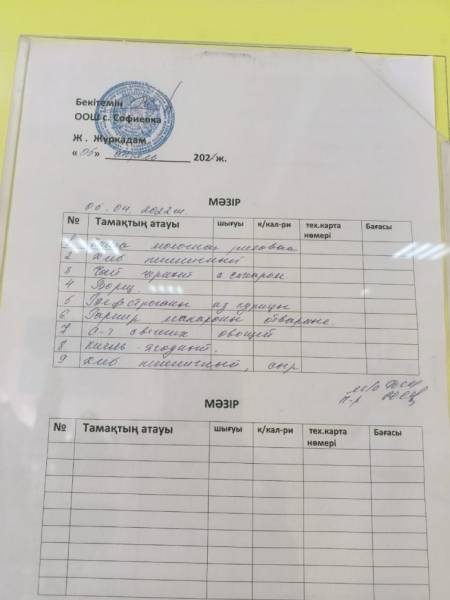 Бекітемін
ООШ с. Софиевка
Ж. Журкадам
«06» апрель 202 ж.
МӘЗІР
06.04.2022ж.
№ Тамақтың атауы шығуы к/кал-ри тех.карта нөмері Бағасы
1 Каша молочная рисовая
2 Хлеб пшеничный
3 Чай черный с сахаром
4 Борщ
5 из курицы
6 Гарнир макароны отварные
7 С-т свежих овощей
8 Кисель ягодный.
9 Хлеб пшеничный, сыр
МӘЗІР
№ Тамақтың атауы шығуы к/кал-ри тех.карта нөмері Бағасы